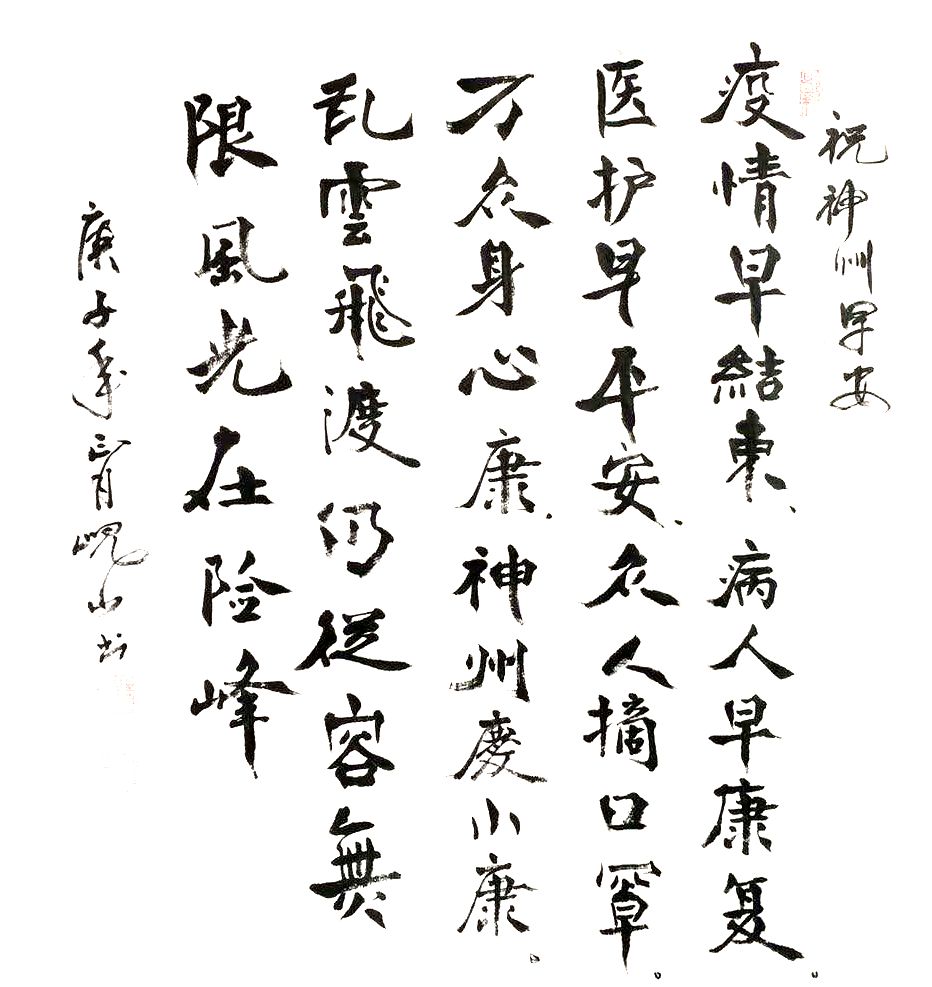 祝神州早安
疫情早結束、病人早康复。
医护早平安、众人摘口罩。
万众身心康、神州慶小康。
乱雲飛渡仍從容無
限風光在险峰
庚子年正月峴山书